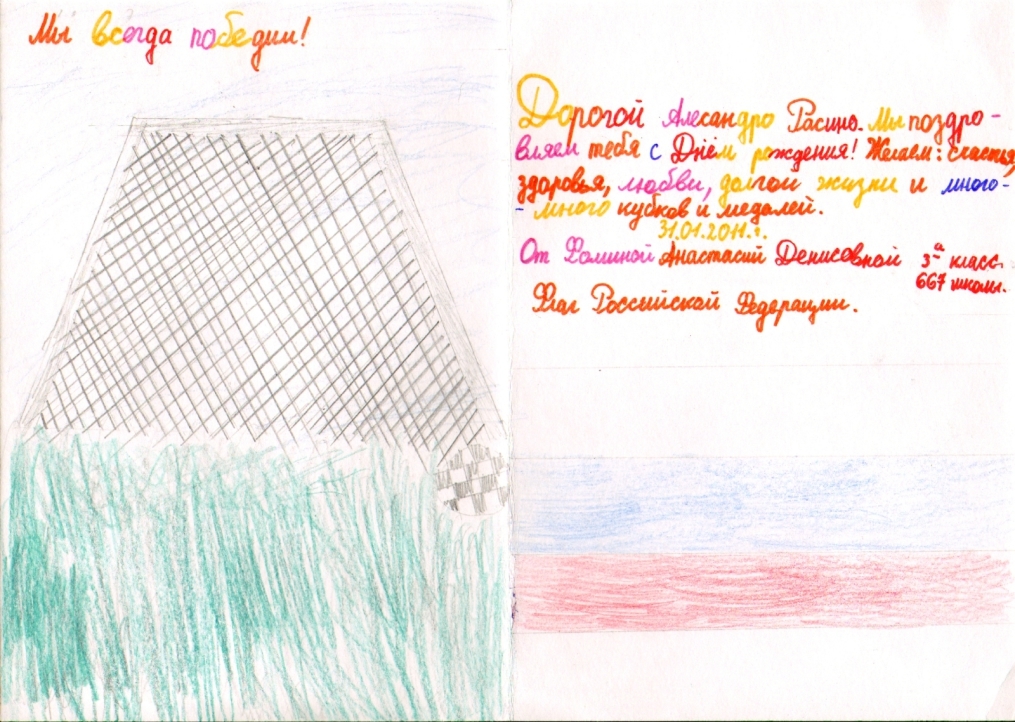 Мы всегда победим!
Дорогой Алесандро Расино. Мы поздро-
вляем тебя с Днём рождения! Желаем: счастья,
здоровья, любви, долгой жизни и много-
- много кубков и медалей.
31.01.2011.г.
От Фоминой Анастасий Денисовной 3а класс.
667 школы.
Флаг Российской Федерации.